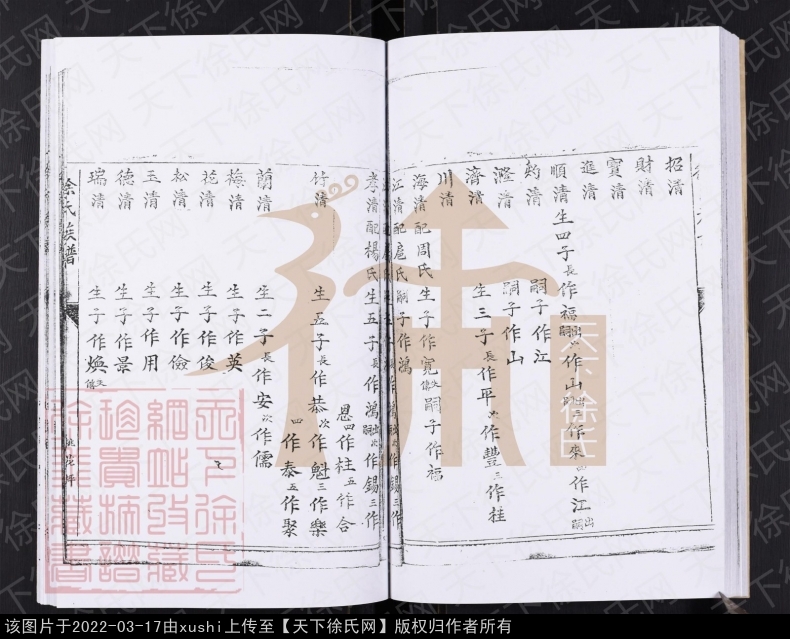 招清
財清
寳清
進清
順清 生四子長作福出嗣次作山出嗣三作來四作江出嗣
約清 嗣子作江
瀅清 嗣子作山
濟清 生三子長作平次作豐三作桂
川清
海清配周氏生子作寛失傳嗣子作福
江清配扈氏嗣子作鴻
孝清配楊氏生五子長作鴻出嗣次作錫三作
恩四作柱五作合
竹清 生五子長作恭次作魁三作樂
四作泰五作聚
蘭清 生二子長作安次作儒
梅清 生子作英
花清 生子作俊
松清 生子作儉
玉清 生子作用
德清 生子作景
瑞清 生子作煥失傳
徐氏族譜
桃花坪
天下徐氏
天下徐氏网
天下徐氏
網站收藏
珍貴摘譜
徐集藏書
该图片于2022-03-17由xushi上传至【天下徐氏网】版权归作者所有